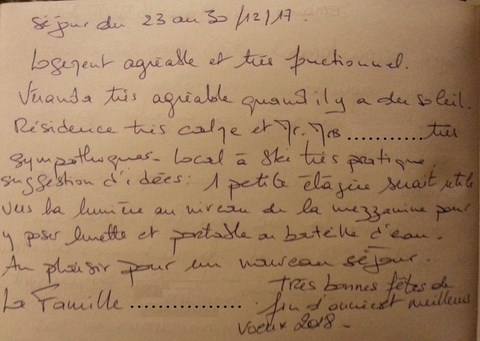 Séjour du 23 au 30/12/17.
Logement agréable et très fonctionnel.
Véranda très agréable quand il y a du soleil.
Résidence très calme et Mr. Mrs ............ très
sympathiques - Local à Ski très pratique.
suggestion d'idées : 1 petite étagère serait utile
vers la lumière au niveau de la mezzanine pour
y poser lunette et portable ou bouteille d'eau.
Au plaisir pour un nouveau séjour.
La Famille ................
Très bonnes fêtes de
fin d'année et meilleurs
voeux 2018 -